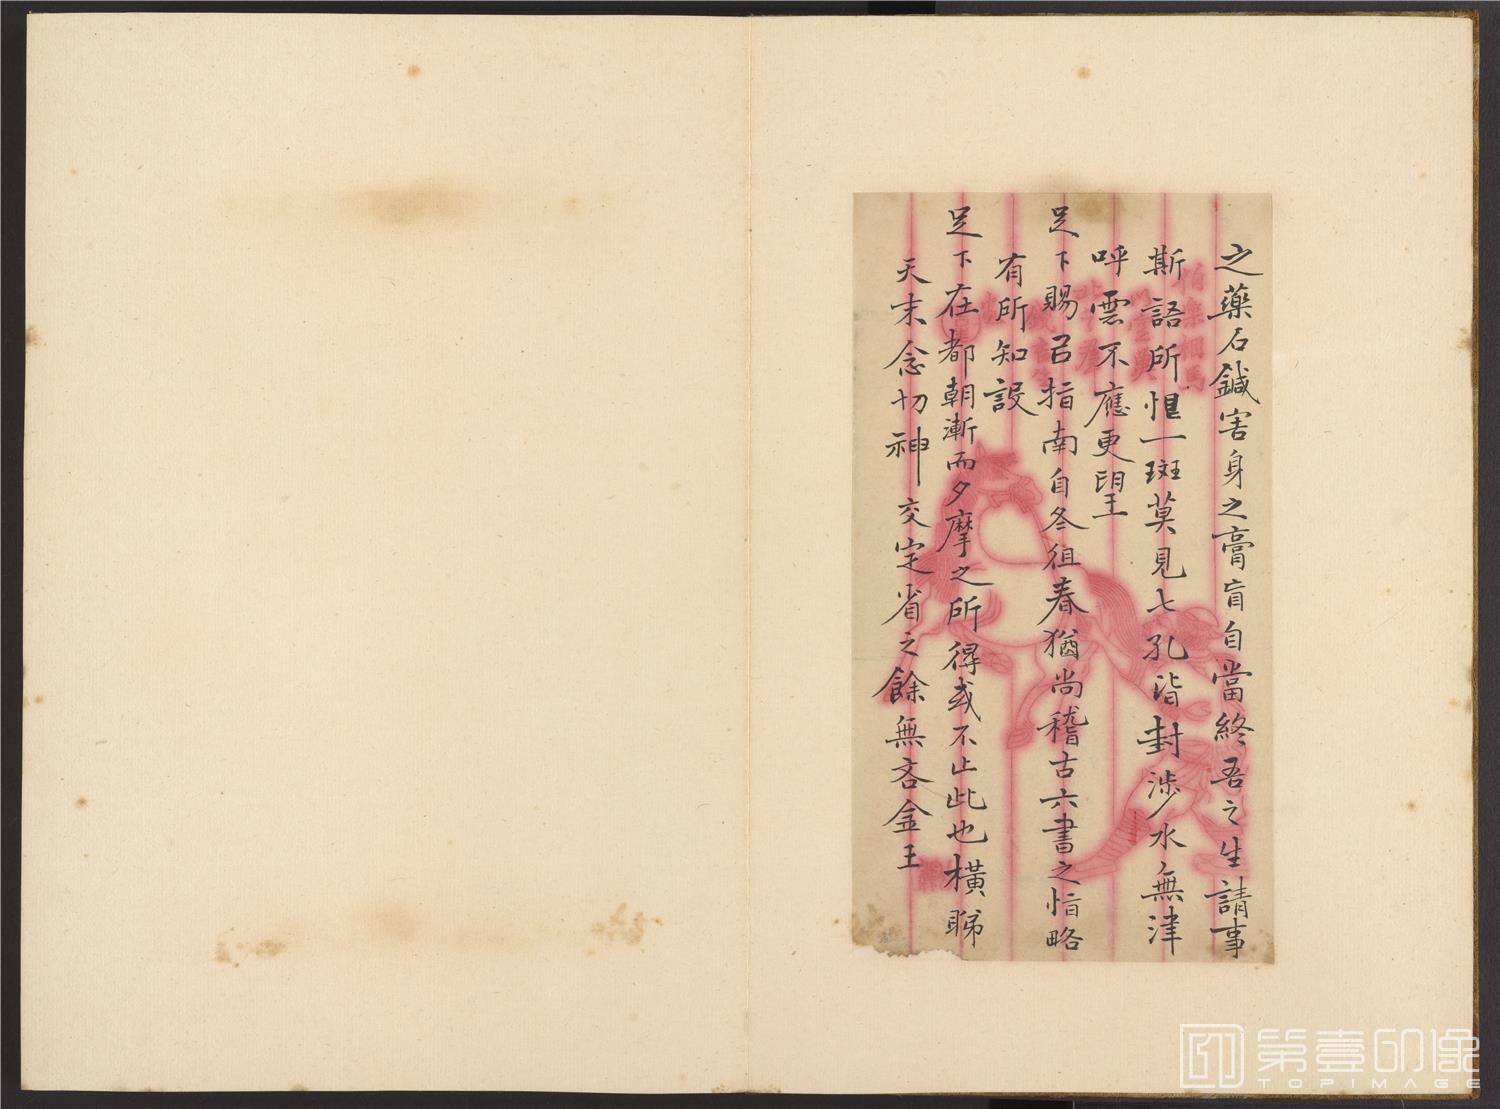 之藥石鍼害身之膏肓自當終吾之生請事
斯語所恨一斑莫見七孔皆封涉水無津
呼雲不應更望
足下賜已指南自冬徂春猶尚稽古六書之恉略
有所知設
足下在都朝漸而夕摩之所得或不止此也橫睇
天末念切神交定省之餘無吝金玉
伯樂相馬
第壹印像
TOPIMAGE